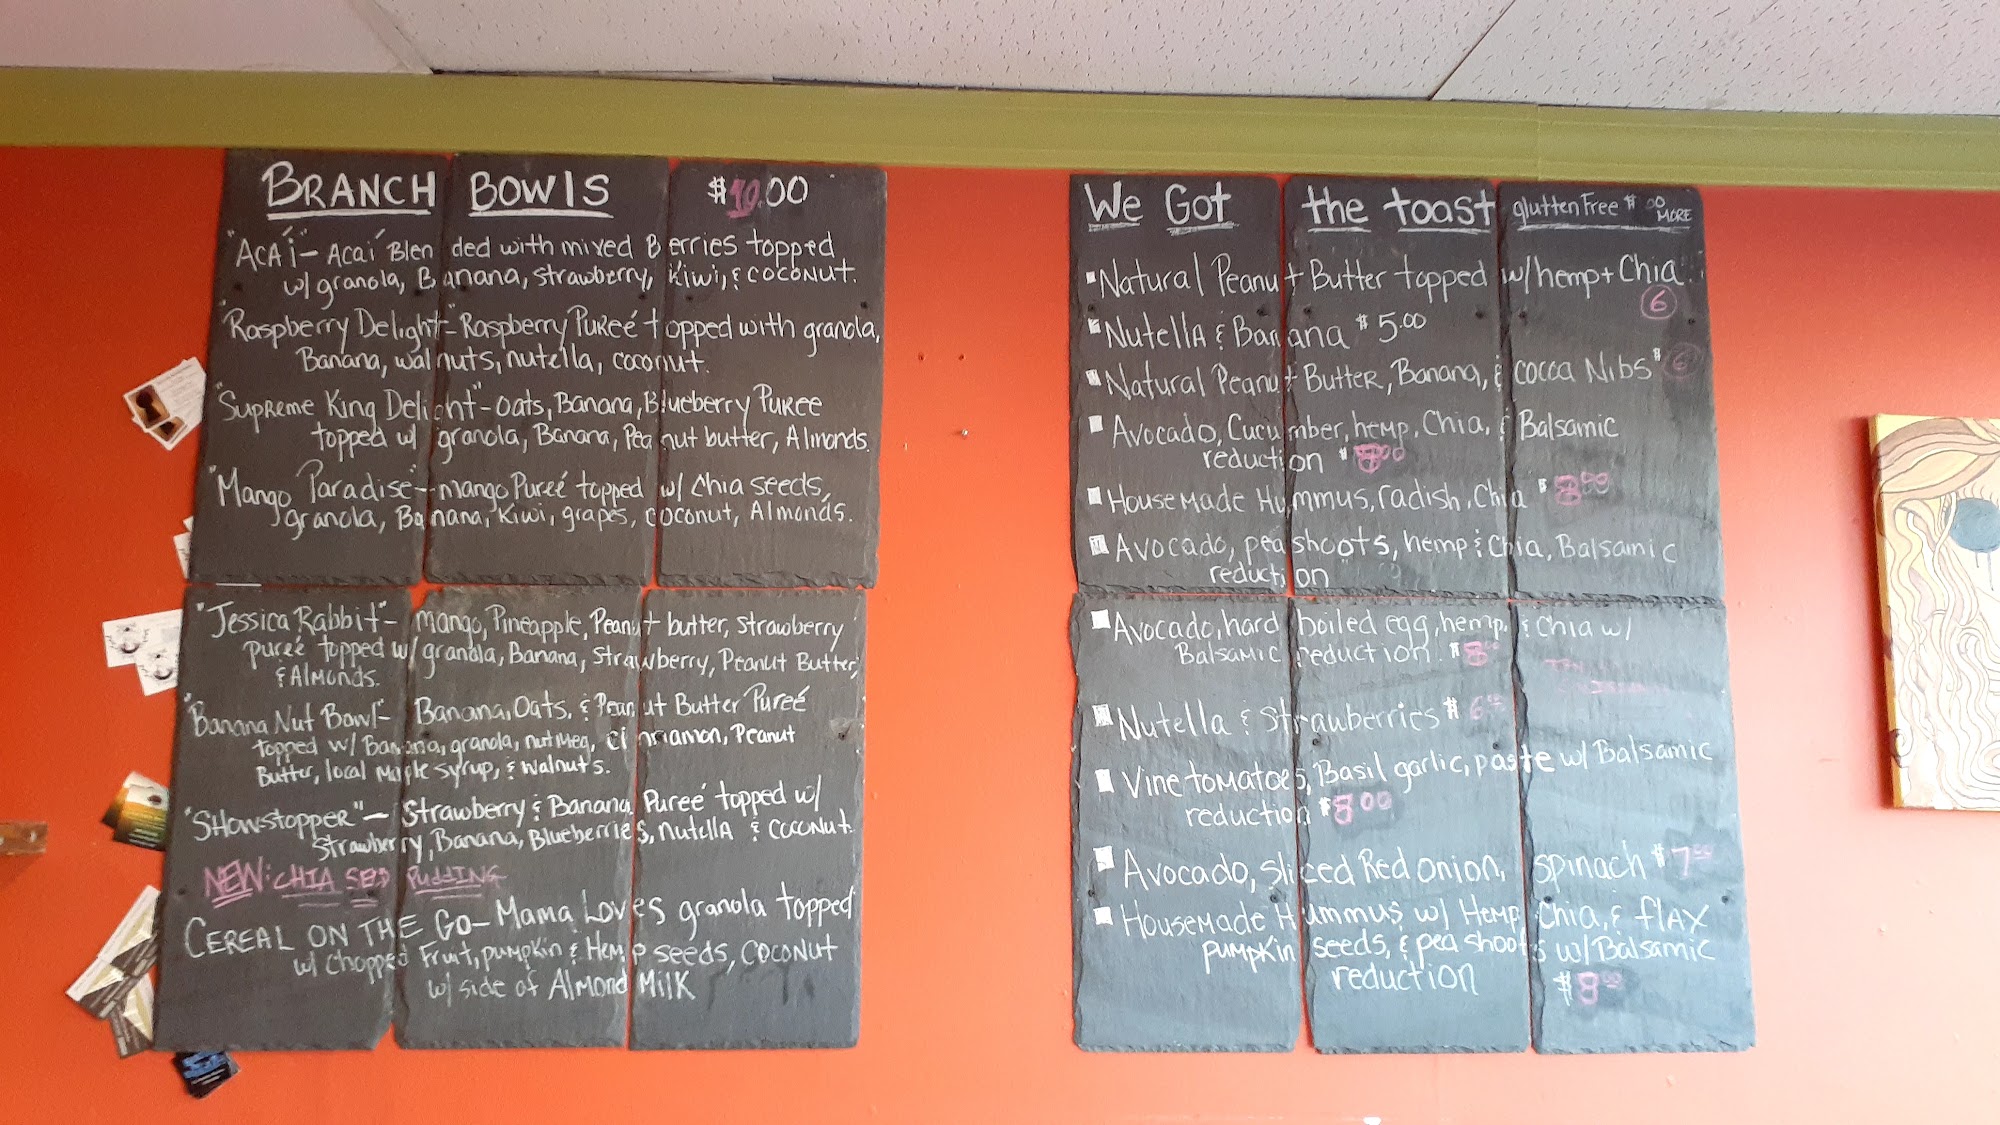 BRANCH BOWlS $10.00
"ACÁí"- Acaí Blended with mixed Berries topped
w/ granola, Banana, strawberry, Kiwi, & coconut.
"Raspberry Delight"- Raspberry PuReé topped with granola,
Banana, walnuts, nutella, coconut.
"Supreme King Delight"- oats, Banana, Blueberry PUREE
topped w/ granola, Banana, Peanut butter, Almonds.
"Mango Paradise"- mango Pureé topped w/ Chia seeds,
granola, Banana, Kiwi, grapes, coconut, Almonds.
"Jessica Rabbit"- mango, Pineapple, Peanut butter, strawberry
pureé topped w/ granola, Banana, Strawberry, Peanut Butter,
& Almonds.
"Banana Nut Bowl"- Banana, Oats, & Peanut Butter Pureé
topped w/ Banana, granola, nutmeg, cinnamon, Peanut
Butter, local Maple syrup, & walnuts.
"SHowstopper"- Strawberry & Banana Pureé topped w/
Strawberry, Banana, Blueberries, nutella & coconut.
NEW: CHIA SEED PUDDING
CEREAL ON THE GO- Mama Loves granola topped
w/ chopped Fruit, pumpkin & Hemp seeds, coconut
w/ side of Almond Milk
We Got the toast gluttenFree $ .00
MORE
Natural Peanut Butter topped w/ hemp + Chia
6
Nutella & Banana $5.00
Natural Peanut Butter, Banana, & cocoa Nibs $6
Avocado, Cucumber, hemp, Chia, & Balsamic
reduction $ .00
House Made Hummus, radish, Chia $8.00
Avocado, pea shoots, hemp & Chia, Balsamic
reduction
Avocado, hard boiled egg, hemp, & Chia w/
Balsamic reduction. $8.00
Nutella & Strawberries $6
Vine tomatoes, Basil garlic, paste w/ Balsamic
reduction $8.00
Avocado, sliced Red Onion, spinach $7.00
Housemade Hummus w/ Hemp, Chia, & flax
pumpkin seeds, & pea shoots w/ Balsamic
reduction
$8.00